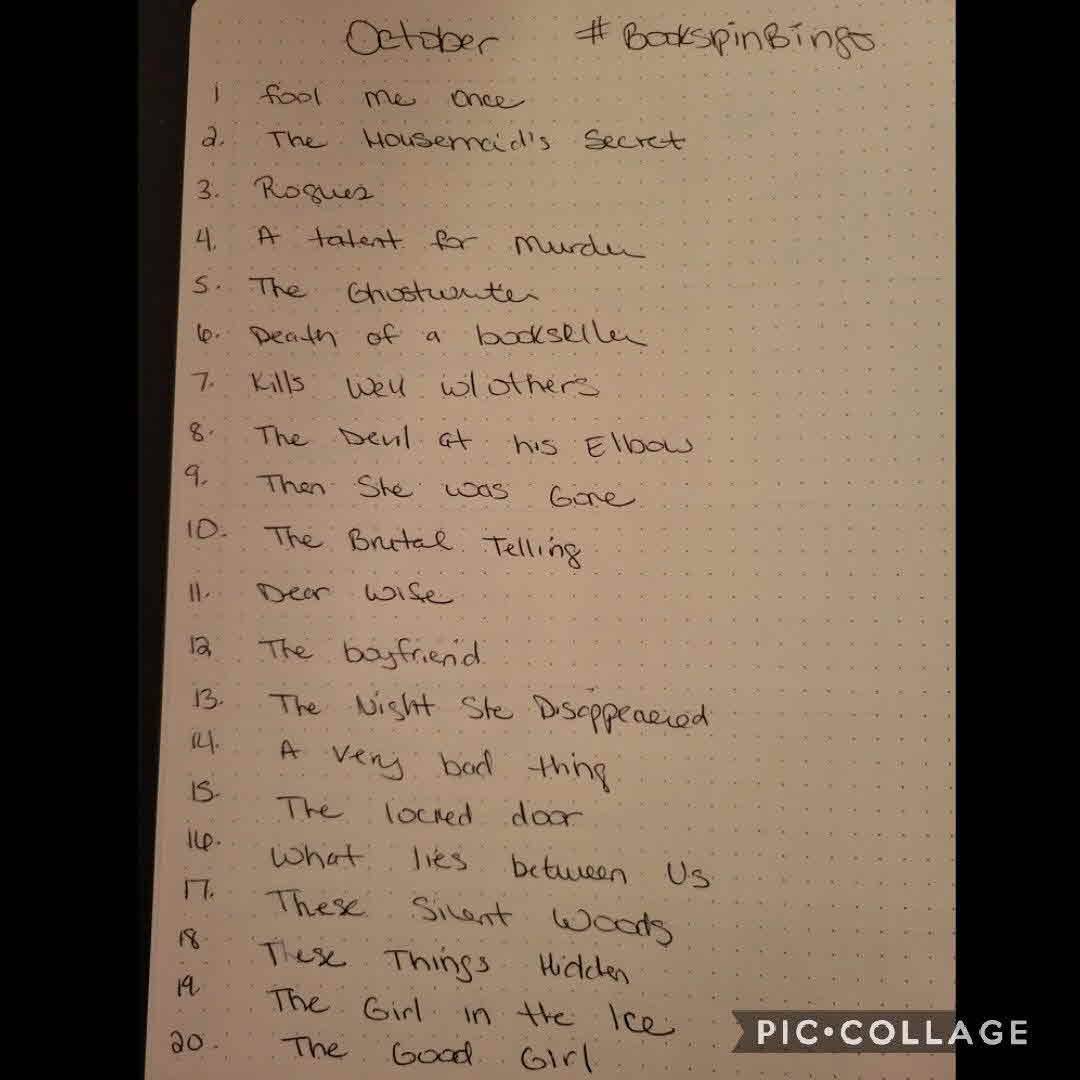 October #BookspinBingo
1 fool me once
2. The Housemaid's Secret
3. Rogues
4. A talent for murder
5. The Ghostwriter
6. Death of a bookseller
7. Kills well w/others
8. The Devil at his Elbow
9. Then She was Gone
10. The Brutal Telling
11. Dear wife
12 The boyfriend
13. The Night She Disappeared
14. A very bad thing
15. The locked door
16. What lies between Us
17. These Silent Woods
18 These Things Hidden
19 The Girl in the Ice
20. The Good Girl
PIC•COLLAGE